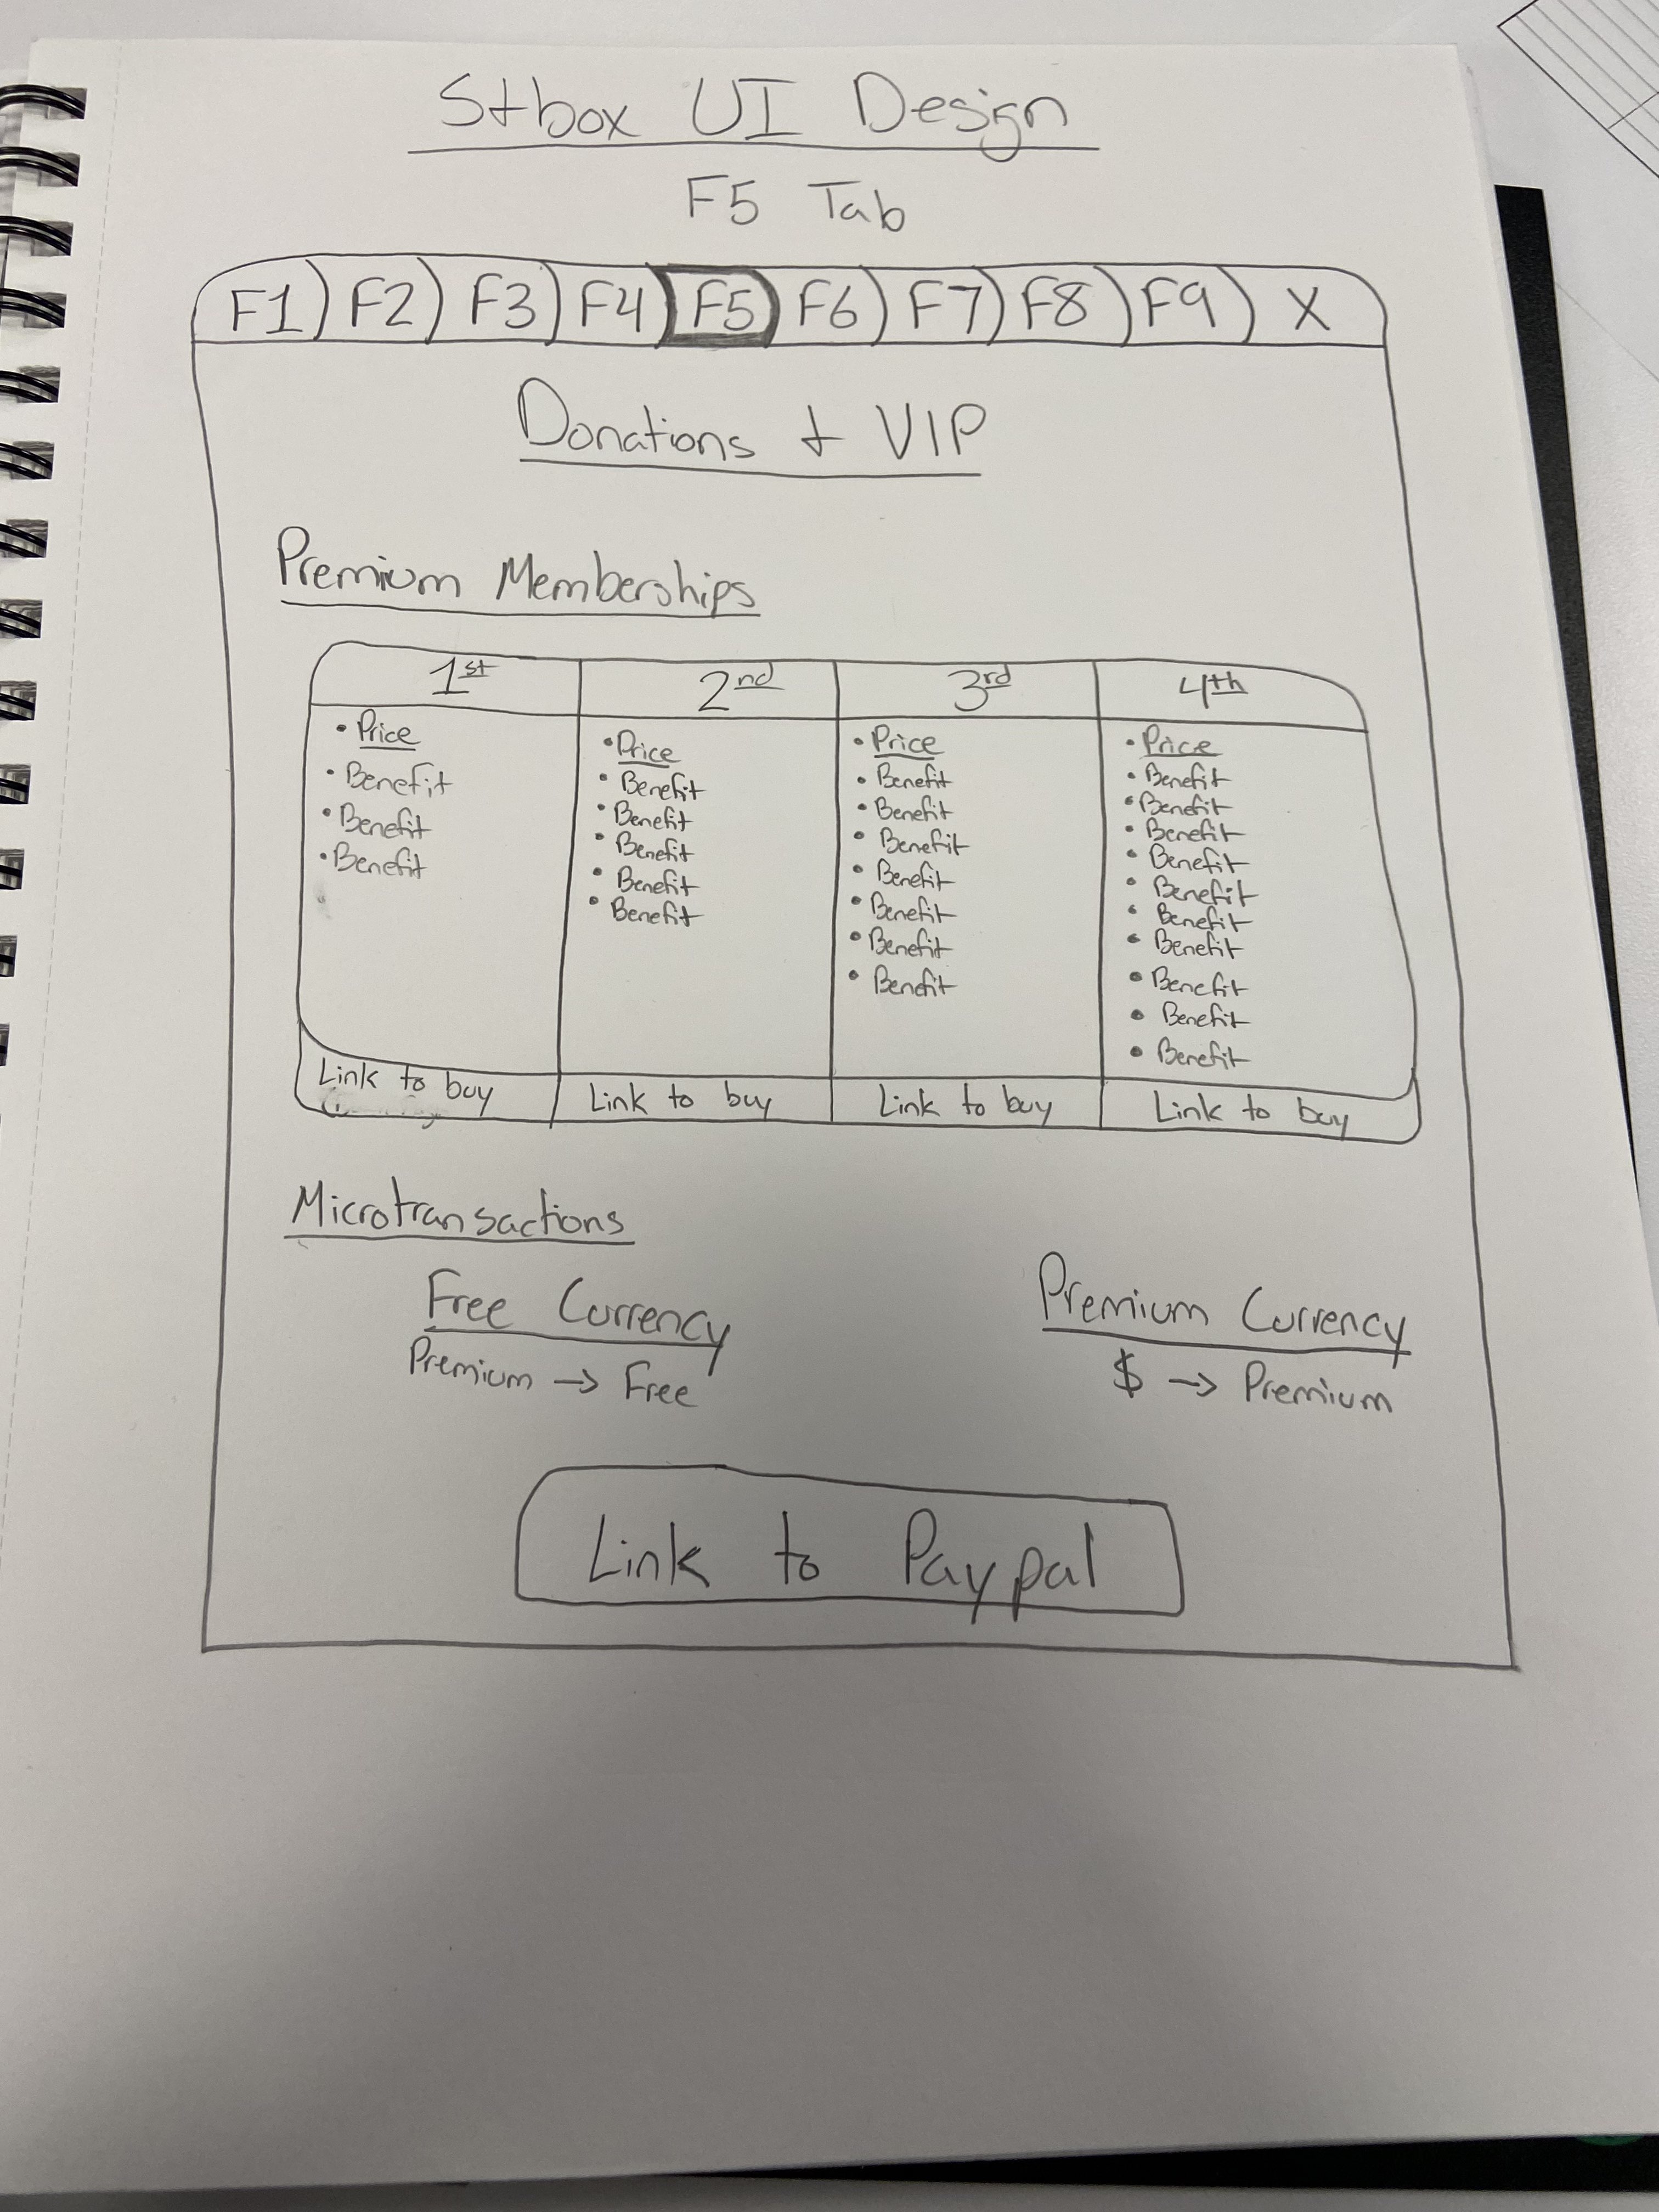 Stbox UI Design
F5 Tab
F1 F2 F3 F4 F5 F6 F7 F8 F9 X
Donations + VIP
Premium Memberships
1st
• Price
• Benefit
• Benefit
• Benefit
Link to buy
2nd
• Price
• Benefit
• Benefit
• Benefit
• Benefit
• Benefit
Link to buy
3rd
• Price
• Benefit
• Benefit
• Benefit
• Benefit
• Benefit
• Benefit
• Benefit
Link to buy
4th
• Price
• Benefit
• Benefit
• Benefit
• Benefit
• Benefit
• Benefit
• Benefit
• Benefit
• Benefit
• Benefit
Link to buy
Microtransactions
Free Currency
Premium → Free
Premium Currency
$ → Premium
Link to Paypal